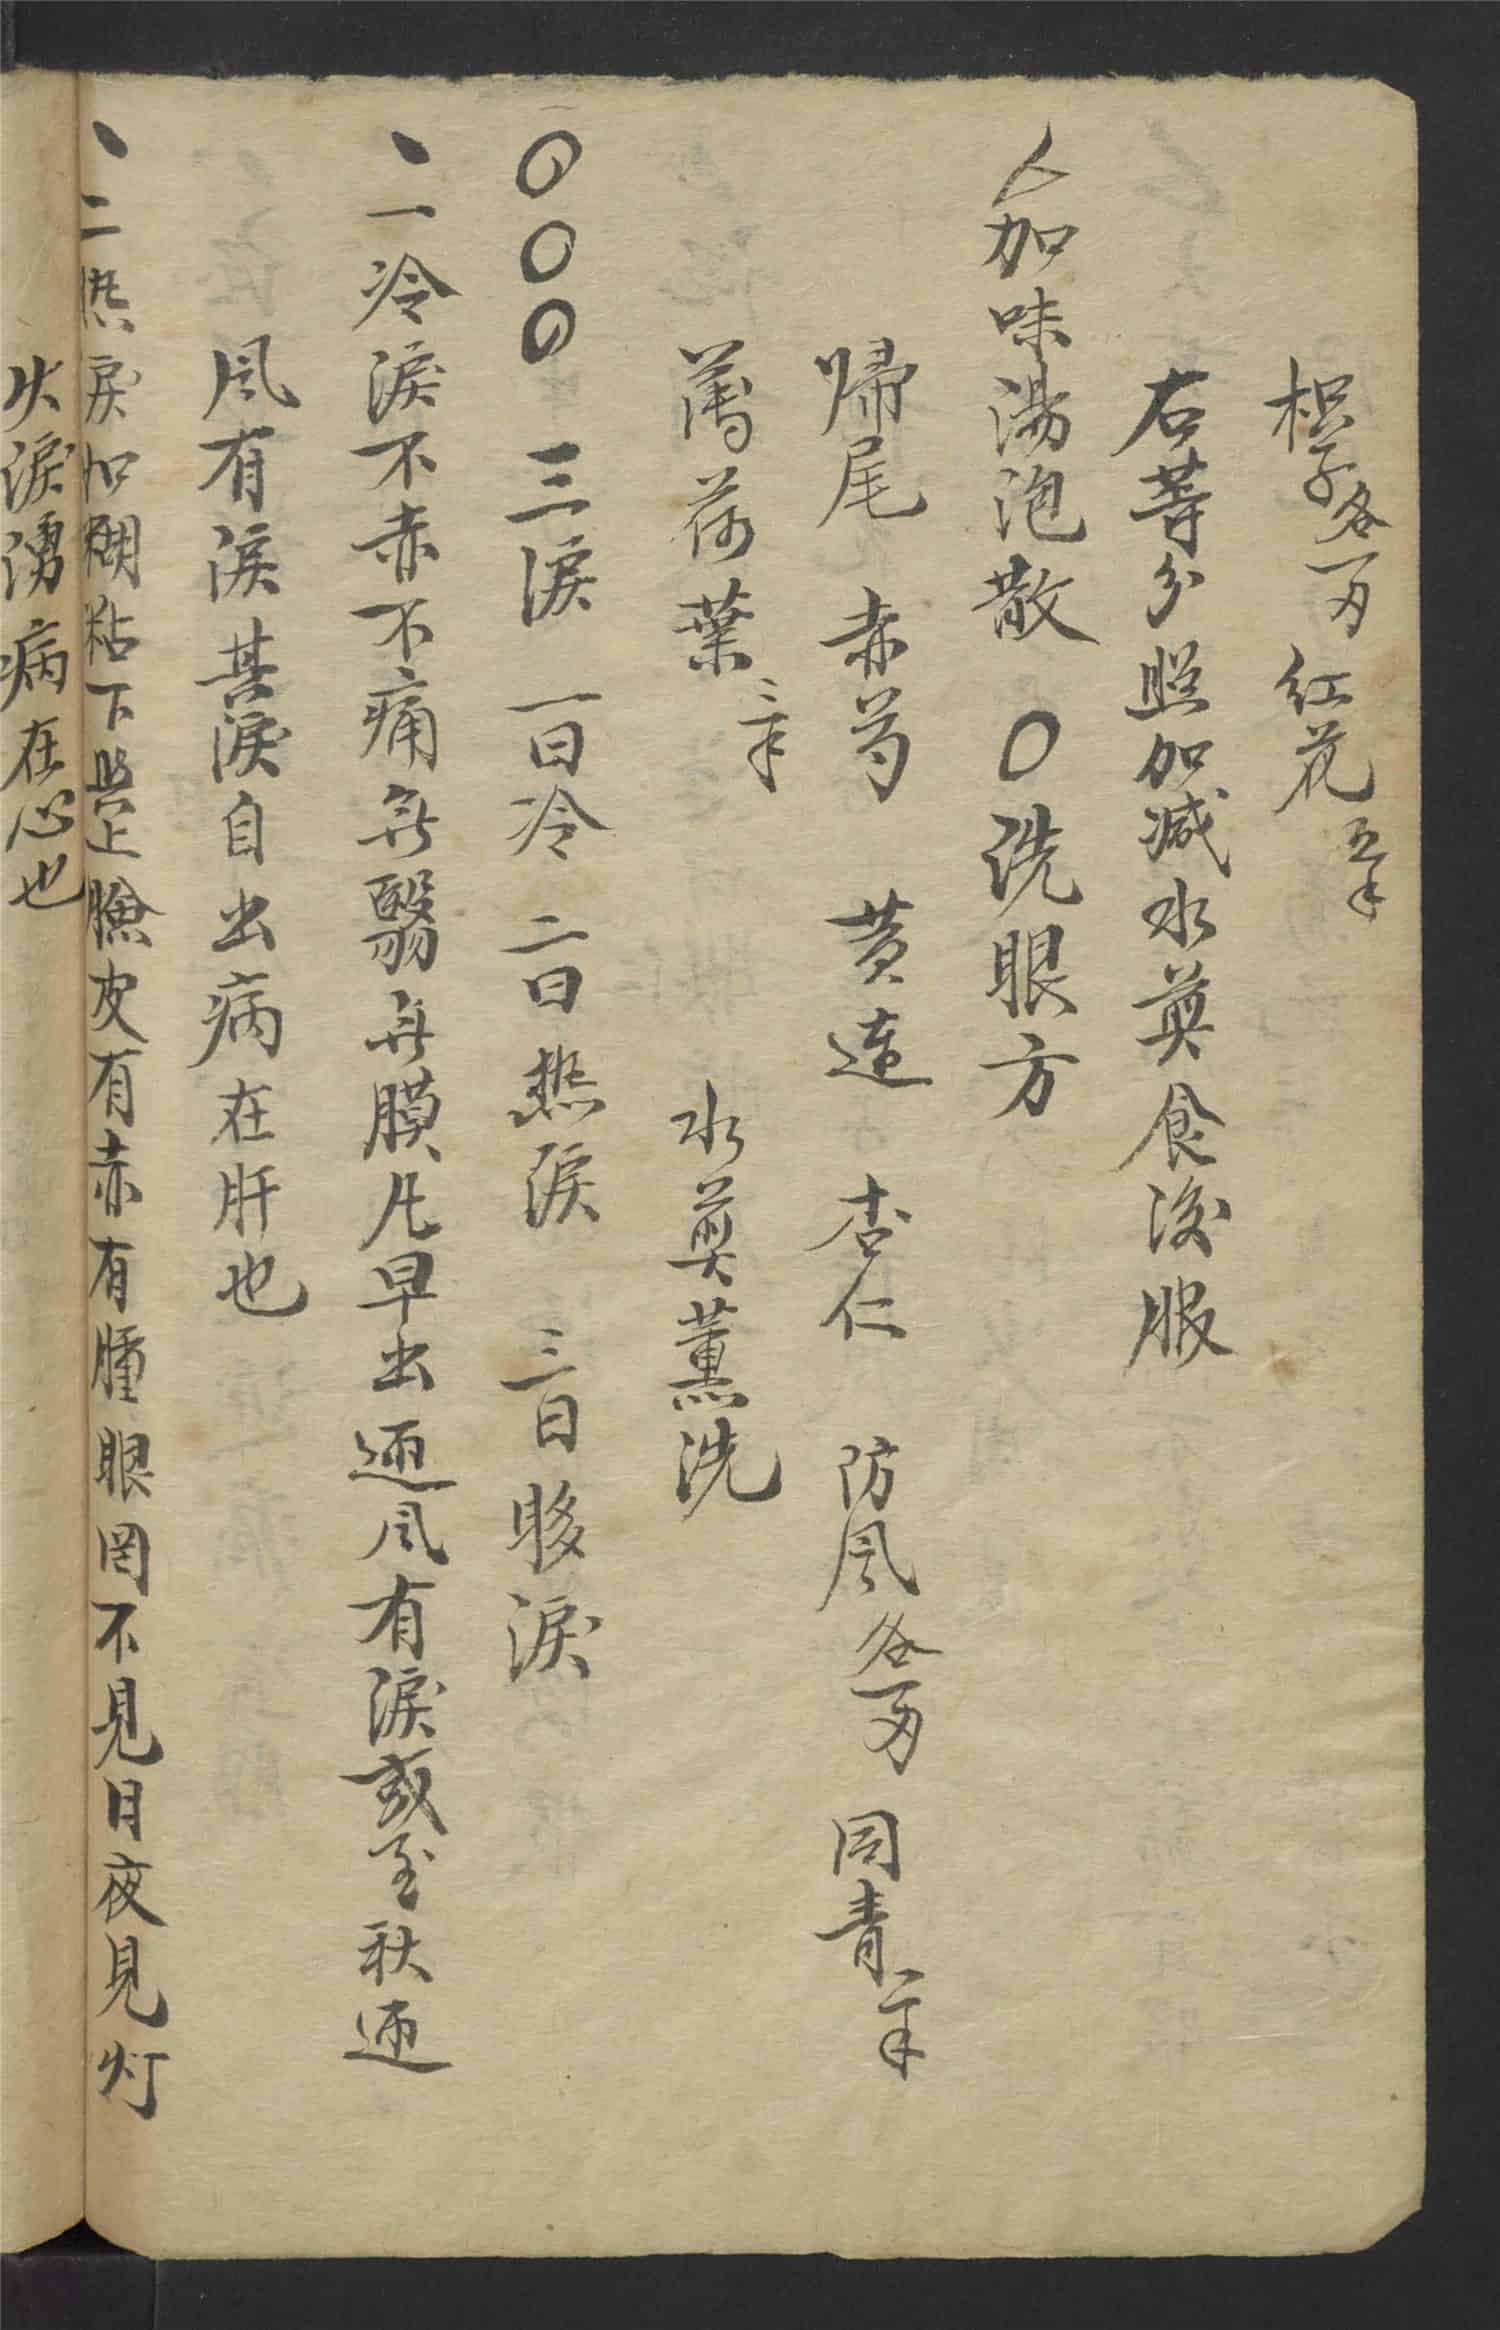 枳子各一刃 紅花五卞
右等分照加减水煎食後服
人加味湯泡散 〇洗眼方
歸尾 赤芍 黄連 杏仁 防風各一刃 同青一卞
薄荷葉三卞 水煎薰洗
〇〇〇 三淚 一曰冷 二曰热淚 三曰眵淚
、一冷淚不赤不痛無翳無膜凡早出迎风有淚或至秋迎
风有淚其淚自出病在肝也
、二热淚如糊粘下上臉皮有赤有腫眼困不見日夜見灯
火淚湧病在心也